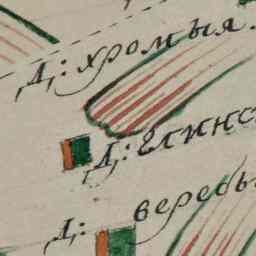 Д: хромыя.
Д: Елинс
Д: вересь